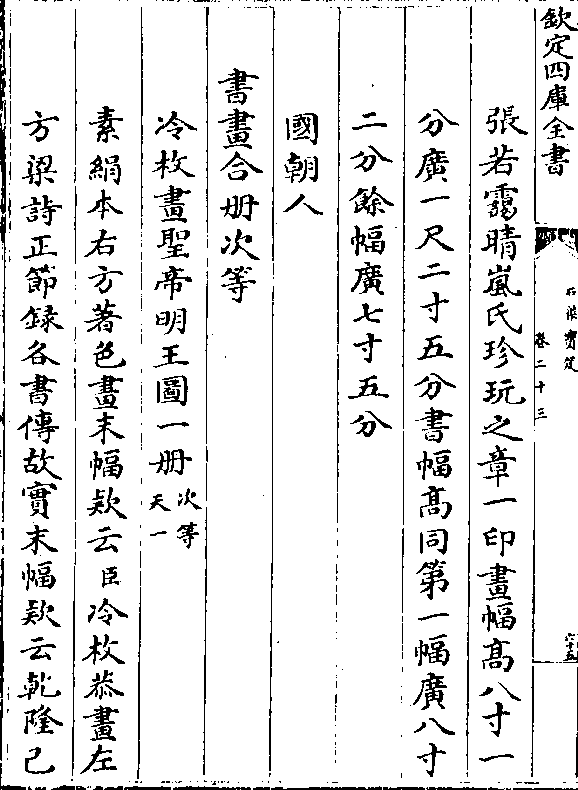 欽定四庫全書
石渠寶笈
卷二十三
六十五
張若靄晴嵐氏珍玩之章一印畫幅高八寸一
分廣一尺二寸五分書幅高同第一幅廣八寸
二分餘幅廣七寸五分
國朝人
書畫合册次等
冷枚畫聖帝明王圖一册次等天一
素絹本右方著色畫末幅款云臣冷枚恭畫左
方梁詩正節録各書傳故實末幅款云乾隆己